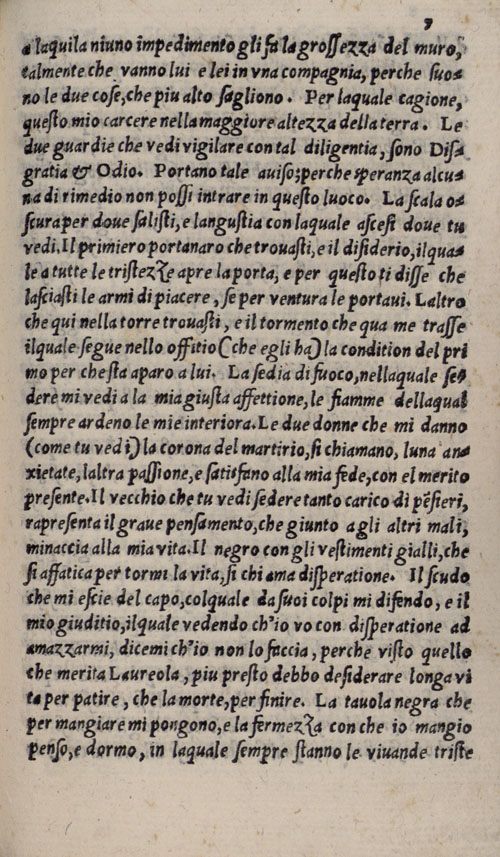 7
a laquila niuno impedimento gli fa la grossezza del muro,
talmente che vanno lui e lei in vna compagnia, perche suo=
no le due cose, che piu alto sagliono. Per laquale cagione,
questo mio carcere nella maggiore altezza della terra. Le
due guardie che vedi vigilare con tal diligentia, sono Disa
gratia & Odio. Portano tale auiso; perche speranza alcu=
na di rimedio non possi intrare in questo luoco. La scala o=
scura per doue salisti, e langustia con laquale ascesi doue tu
vedi. Il primiero portanaro che trouasti, e il disiderio, ilqua=
le a tutte le tristezze apre la porta, e per questo ti disse che
lasciasti le armi di piacere, se per ventura le portaui. Laltro
che qui nella torre trouasti, e il tormento che qua me trasse
ilquale segue nello offitio (che egli ha) la condition del pri
mo per che sta aparo a lui. La sedia di fuoco, nellaquale se=
dere mi vedi a la mia giusta affettione, le fiamme dellaqual
sempre ardeno le mie interiora. Le due donne che mi danno
(come tu vedi) la corona del martirio, si chiamano, luna an=
xietate, laltra passione, e satisfano alla mia fede, con el merito
presente. Il vecchio che tu vedi sedere tanto carico di pēsieri,
rapresenta il graue pensamento, che giunto a gli altri mali,
minaccia alla mia vita. Il negro con gli vestimenti gialli, che
si affatica per tormi la vita, si chiama disperatione. Il scudo
che mi escie del capo, colquale da suoi colpi mi difendo, e il
mio giuditio, ilquale vedendo ch'io vo con disperatione ad
amazzarmi, dicemi ch'io non lo faccia, perche visto quello
che merita Laureola, piu presto debbo desiderare longa vi
ta per patire, che la morte, per finire. La tauola negra che
per mangiare mi pongono, e la fermezza con che io mangio
penso, e dormo, in laquale sempre stanno le viuande triste